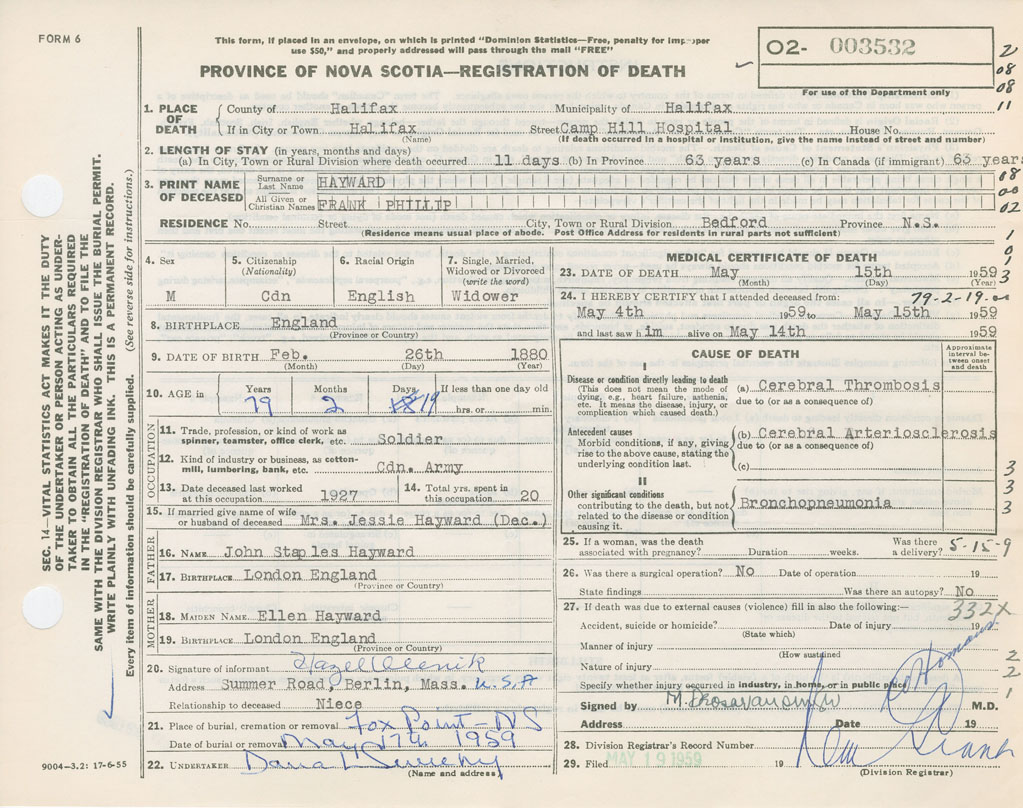 FORM 6
This form, if placed in an envelope, on which is printed "Dominion Statistics—Free, penalty for improper
use $50," and properly addressed will pass through the mail "FREE"
PROVINCE OF NOVA SCOTIA—REGISTRATION OF DEATH
02- 003532
For use of the Department only
2
08
08
11
1. PLACE OF DEATH
County of Halifax Municipality of Halifax
If in City or Town Halifax Street Camp Hill Hospital House No.
(Name) (If death occurred in a hospital or institution, give the name instead of street and number)
2. LENGTH OF STAY (in years, months and days)
(a) In City, Town or Rural Division where death occurred 11 days (b) In Province 63 years (c) In Canada (if immigrant) 63 years
3. PRINT NAME OF DECEASED
Surname or Last Name HAYWARD
All Given or Christian Names FRANK PHILLIP
08
00
02
RESIDENCE No. Street City, Town or Rural Division Bedford Province N.S.
(Residence means usual place of abode. Post Office Address for residents in rural parts not sufficient)
4. Sex
M
5. Citizenship
(Nationality)
Cdn
6. Racial Origin
English
7. Single, Married,
Widowed or Divorced
(write the word)
Widower
8. BIRTHPLACE England
(Province or Country)
9. DATE OF BIRTH Feb. 26th 1880
(Month) (Day) (Year)
10. AGE in
Years Months Days If less than one day old
79 2 19 hrs. or min.
OCCUPATION
11. Trade, profession, or kind of work as
spinner, teamster, office clerk, etc. Soldier
12. Kind of industry or business, as cotton-
mill, lumbering, bank, etc. Cdn. Army
13. Date deceased last worked
at this occupation 1927
14. Total yrs. spent in
this occupation 20
15. If married give name of wife
or husband of deceased Mrs. Jessie Hayward (Dec.)
FATHER
16. NAME John Staples Hayward
17. BIRTHPLACE London England
(Province or Country)
MOTHER
18. MAIDEN NAME Ellen Hayward
19. BIRTHPLACE London England
(Province or Country)
20. Signature of informant Hazel Olesnik
Address Summer Road, Berlin, Mass. U.S.A
Relationship to deceased Niece
21. Place of burial, cremation or removal Fox Point-NS
Date of burial or removal May 17th 1959
22. UNDERTAKER
(Name and address)
MEDICAL CERTIFICATE OF DEATH
23. DATE OF DEATH May 15th 1959
(Month) (Day) (Year)
1
0
1
3
24. I HEREBY CERTIFY that I attended deceased from: 79-2-19
May 4th 1959 to May 15th 1959
and last saw him alive on May 14th 1959
CAUSE OF DEATH
Approximate
interval be-
tween onset
and death
I
Disease or condition directly leading to death
(This does not mean the mode of
dying, e.g., heart failure, asthenia,
etc. It means the disease, injury, or
complication which caused death.)
(a) Cerebral Thrombosis
due to (or as a consequence of)
Antecedent causes
Morbid conditions, if any, giving
rise to the above cause, stating the
underlying condition last.
(b) Cerebral Arteriosclerosis
due to (or as a consequence of)
(c)
II
Other significant conditions
contributing to the death, but not
related to the disease or condition
causing it.
Bronchopneumonia
3
3
3
25. If a woman, was the death
associated with pregnancy? Duration weeks. Was there
a delivery? 5-15-9
26. Was there a surgical operation? No Date of operation 19
State findings Was there an autopsy? No
27. If death was due to external causes (violence) fill in also the following:—
332X
Accident, suicide or homicide? Date of injury 19
(State which)
Manner of injury
(How sustained
Nature of injury
Specify whether injury occurred in industry, in home, or in public place
2
2
1
Signed by M.D.
Address Date 19
28. Division Registrar's Record Number
29. Filed MAY 19 1959 19
(Division Registrar)
SEC. 14—VITAL STATISTICS ACT MAKES IT THE DUTY
OF THE UNDERTAKER OR PERSON ACTING AS UNDER-
TAKER TO OBTAIN ALL THE PARTICULARS REQUIRED
IN THE "REGISTRATION OF DEATH" AND TO FILE THE
SAME WITH THE DIVISION REGISTRAR WHO SHALL ISSUE THE BURIAL PERMIT.
WRITE PLAINLY WITH UNFADING INK. THIS IS A PERMANENT RECORD.
Every item of information should be carefully supplied. (See reverse side for instructions.)
9004-3.2: 17-6-55